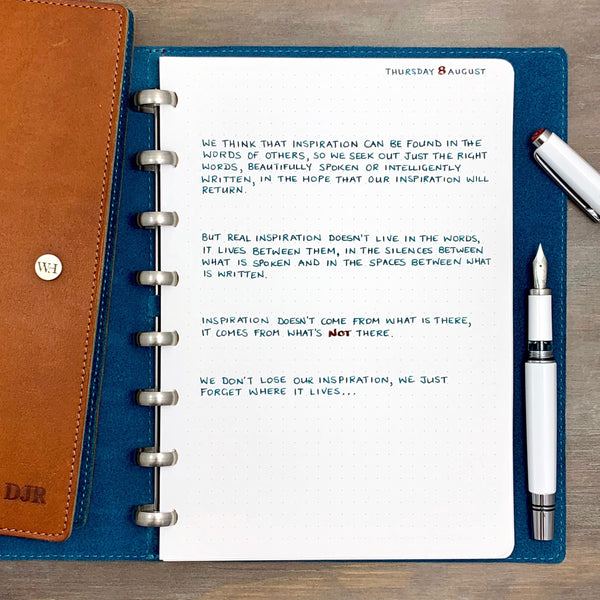 THURSDAY 8 AUGUST
WE THINK THAT INSPIRATION CAN BE FOUND IN THE
WORDS OF OTHERS, SO WE SEEK OUT JUST THE RIGHT
WORDS, BEAUTIFULLY SPOKEN OR INTELLIGENTLY
WRITTEN, IN THE HOPE THAT OUR INSPIRATION WILL
RETURN.
BUT REAL INSPIRATION DOESN'T LIVE IN THE WORDS,
IT LIVES BETWEEN THEM, IN THE SILENCES BETWEEN
WHAT IS SPOKEN AND IN THE SPACES BETWEEN WHAT
IS WRITTEN.
INSPIRATION DOESN'T COME FROM WHAT IS THERE,
IT COMES FROM WHAT'S NOT THERE.
WE DON'T LOSE OUR INSPIRATION, WE JUST
FORGET WHERE IT LIVES...
DJR